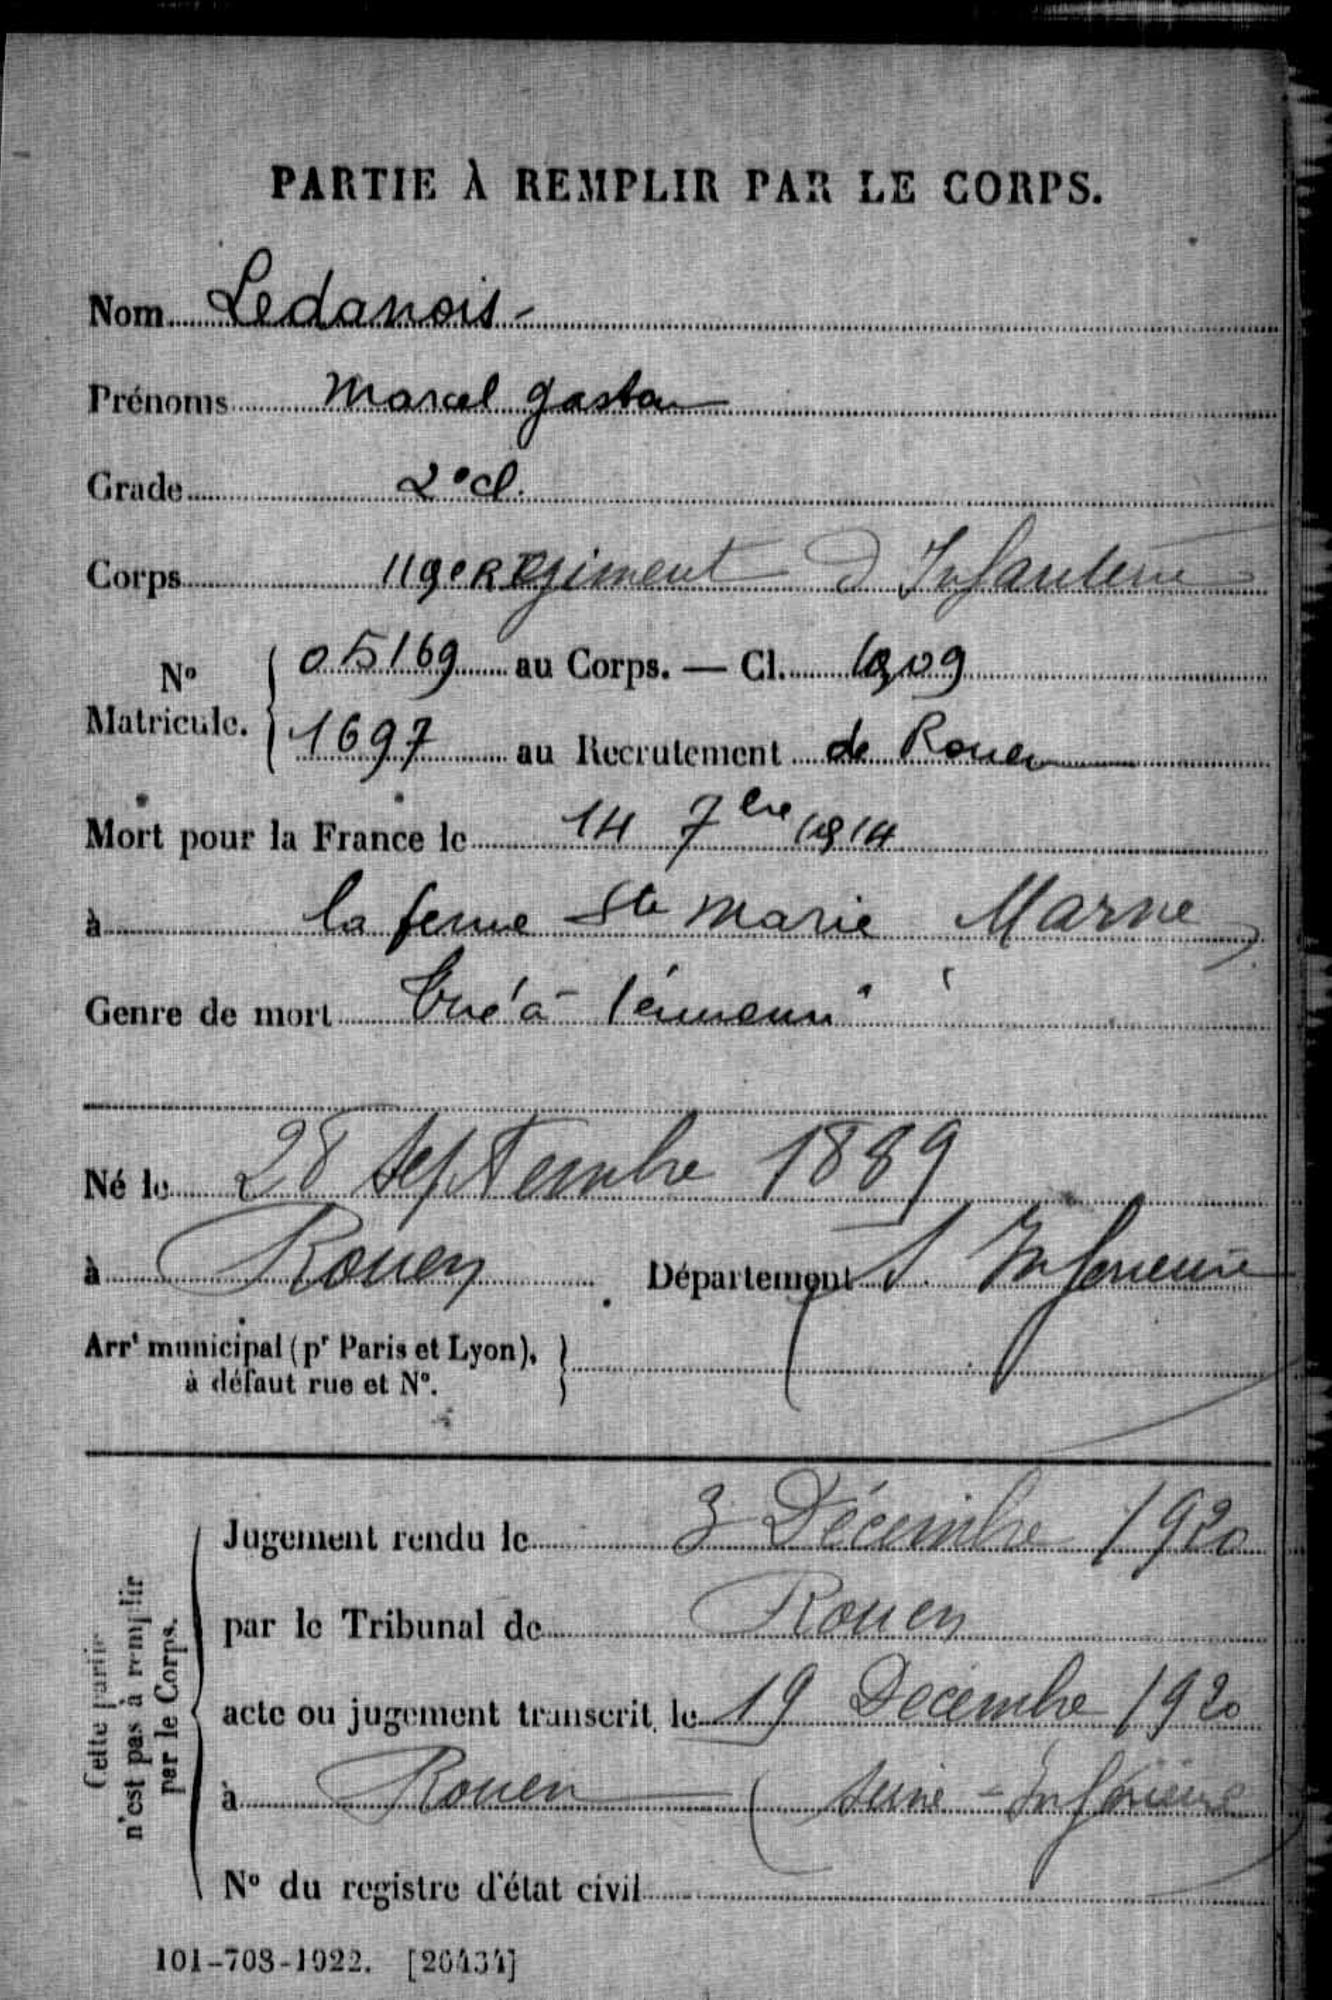 PARTIE À REMPLIR PAR LE CORPS.
Nom Ledanois -
Prénoms Marcel Gaston
Grade 2e cl.
Corps 119e Régiment d'Infanterie
No Matricule. { 05169 au Corps. — Cl. 1909
1697 au Recrutement de Rouen
Mort pour la France le 14 7bre 1914
à la ferme Ste Marie Marne
Genre de mort Tué à l'ennemi
Né le 28 Septembre 1889
à Rouen Département S. Inferieure
Arrt municipal (pr Paris et Lyon), à défaut rue et No. }
Cette partie n'est pas à remplir par le Corps.
Jugement rendu le 3 Décembre 1920
par le Tribunal de Rouen
acte ou jugement transcrit le 19 Décembre 1920
à Rouen (Seine-Inférieure)
No du registre d'état civil
101-708-1922. [26434]